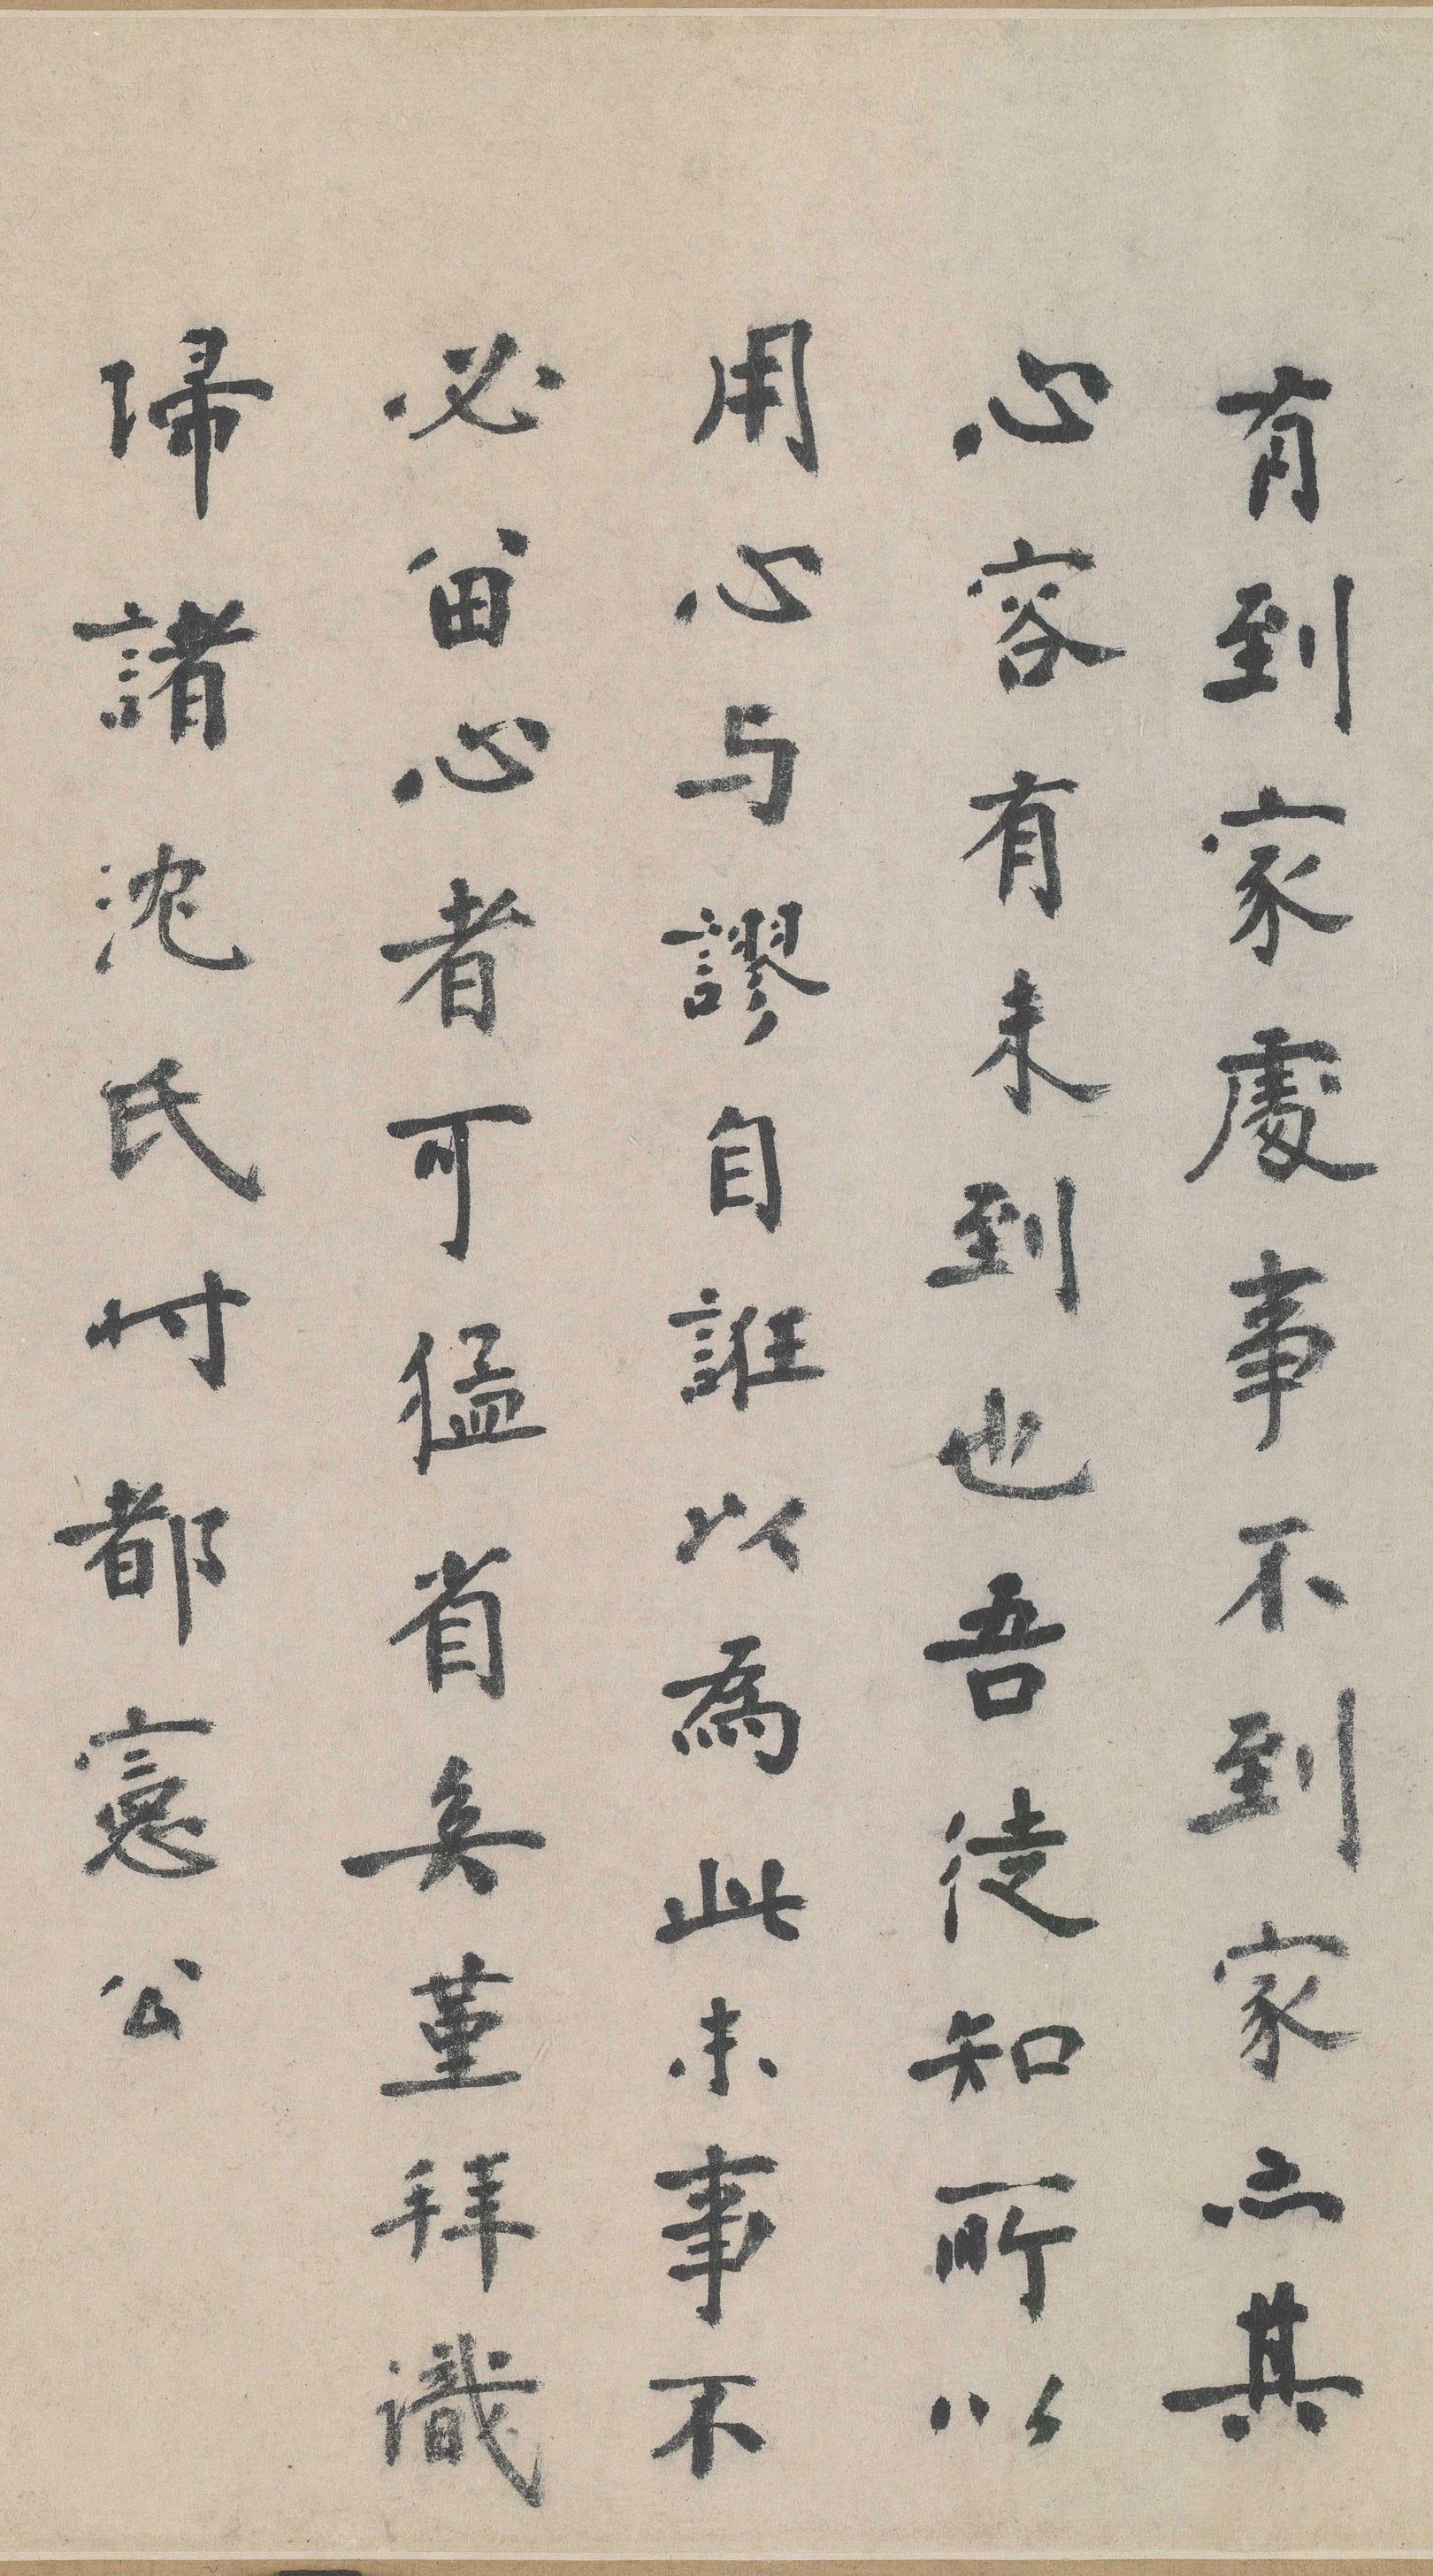 有到家處事不到家亦其
心容有未到也吾徒知所以
用心与謬自誑以為此末事不
必留心者可猛省矣堇拜識
歸諸沈氏付都憲公